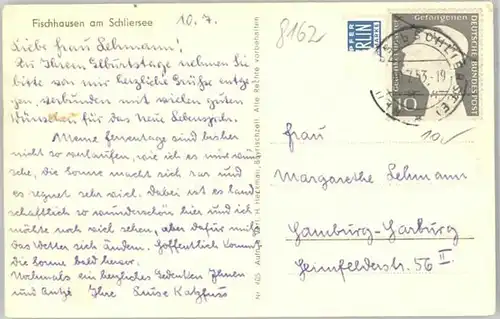 Fischhausen am Schliersee 10.7.
Liebe Frau Lehmann!
Zu Ihrem Geburtstage nehmen Sie
bitte von mir herzliche Grüße entge-
gen, verbunden mit vielen guten
Wünschen für das Neue Lebensjahr.
Meine Ferientage sind bisher
nicht so verlaufen, wie ich es mir wün-
sche, die Sonne macht sich rar und
es regnet sehr viel. Dabei ist es land-
schaftlich so wunderschön hier und ich
möchte noch viel sehen, aber dafür muß
das Wetter sich ändern. Hoffentlich kommt
die Sonne bald hervor.
Nochmals ein herzliches Gedenken Ihnen
und Antje Ihre Luise Katzfuss
Nr. 405
H. Heckmann, Bayrischzell. Alte Rechte vorbehalten
8162
NOTOPFER
BERLIN
2
STEUERMARKE
Gefangenen
DEUTSCHE BUNDESPOST
10
SCHLIERSEE
7.53.-19
10.-
Frau
Margarethe Lehmann
Hamburg-Harburg
Heimfelderstr. 56 II